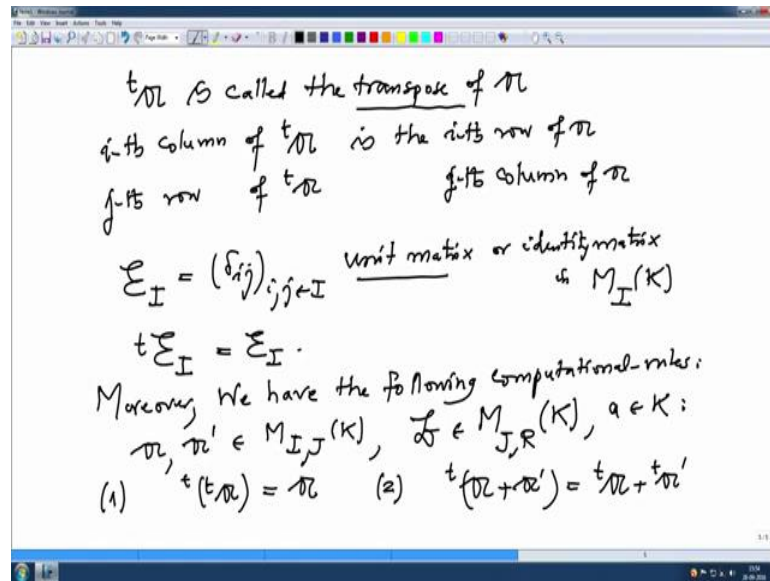 Note1 - Windows Journal
File Edit View Insert Actions Tools Help
Page Width
ᵗ𝔄 is called the transpose of 𝔄
i-th column of ᵗ𝔄 is the i-th row of 𝔄
j-th row of ᵗ𝔄 j-th column of 𝔄
ℰ_I = (δ_ij)_{i,j∈I} unit matrix or identity matrix
in M_I(K)
ᵗℰ_I = ℰ_I.
Moreover, we have the following computational-rules:
𝔄, 𝔄' ∈ M_{I,J}(K), 𝔅 ∈ M_{J,R}(K), a ∈ K:
(1) ᵗ(ᵗ𝔄) = 𝔄 (2) ᵗ(𝔄+𝔄') = ᵗ𝔄 + ᵗ𝔄'